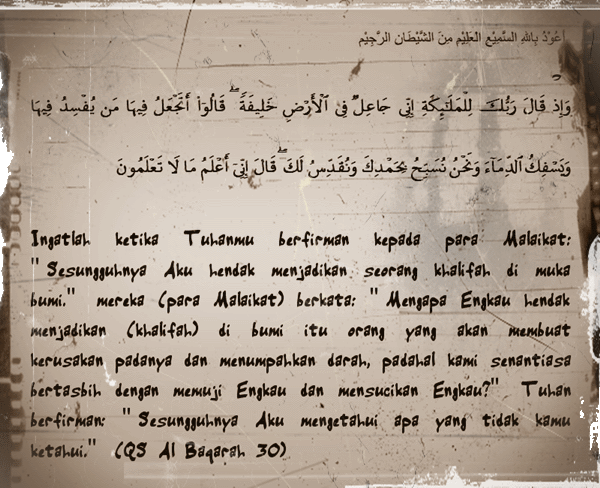 أعُوْذُ بِاللهِ السَّمِيْعِ العَلِيْمِ مِنَ الشَّيْطَانِ الرَّجِيْمِ
وَإِذْ قَالَ رَبُّكَ لِلْمَلَٰٓئِكَةِ إِنِّى جَاعِلٌ فِى ٱلْأَرْضِ خَلِيفَةً ۖ قَالُوٓا۟ أَتَجْعَلُ فِيهَا مَن يُفْسِدُ فِيهَا
وَيَسْفِكُ ٱلدِّمَآءَ وَنَحْنُ نُسَبِّحُ بِحَمْدِكَ وَنُقَدِّسُ لَكَ ۖ قَالَ إِنِّىٓ أَعْلَمُ مَا لَا تَعْلَمُونَ
Ingatlah ketika Tuhanmu berfirman kepada para Malaikat:
" Sesungguhnya Aku hendak menjadikan seorang khalifah di muka
bumi." mereka (para Malaikat) berkata: " Mengapa Engkau hendak
menjadikan (khalifah) di bumi itu orang yang akan membuat
kerusakan padanya dan menumpahkan darah, padahal kami senantiasa
bertasbih dengan memuji Engkau dan mensucikan Engkau?" Tuhan
berfirman: " Sesungguhnya Aku mengetahui apa yang tidak kamu
ketahui." (QS Al Baqarah 30)